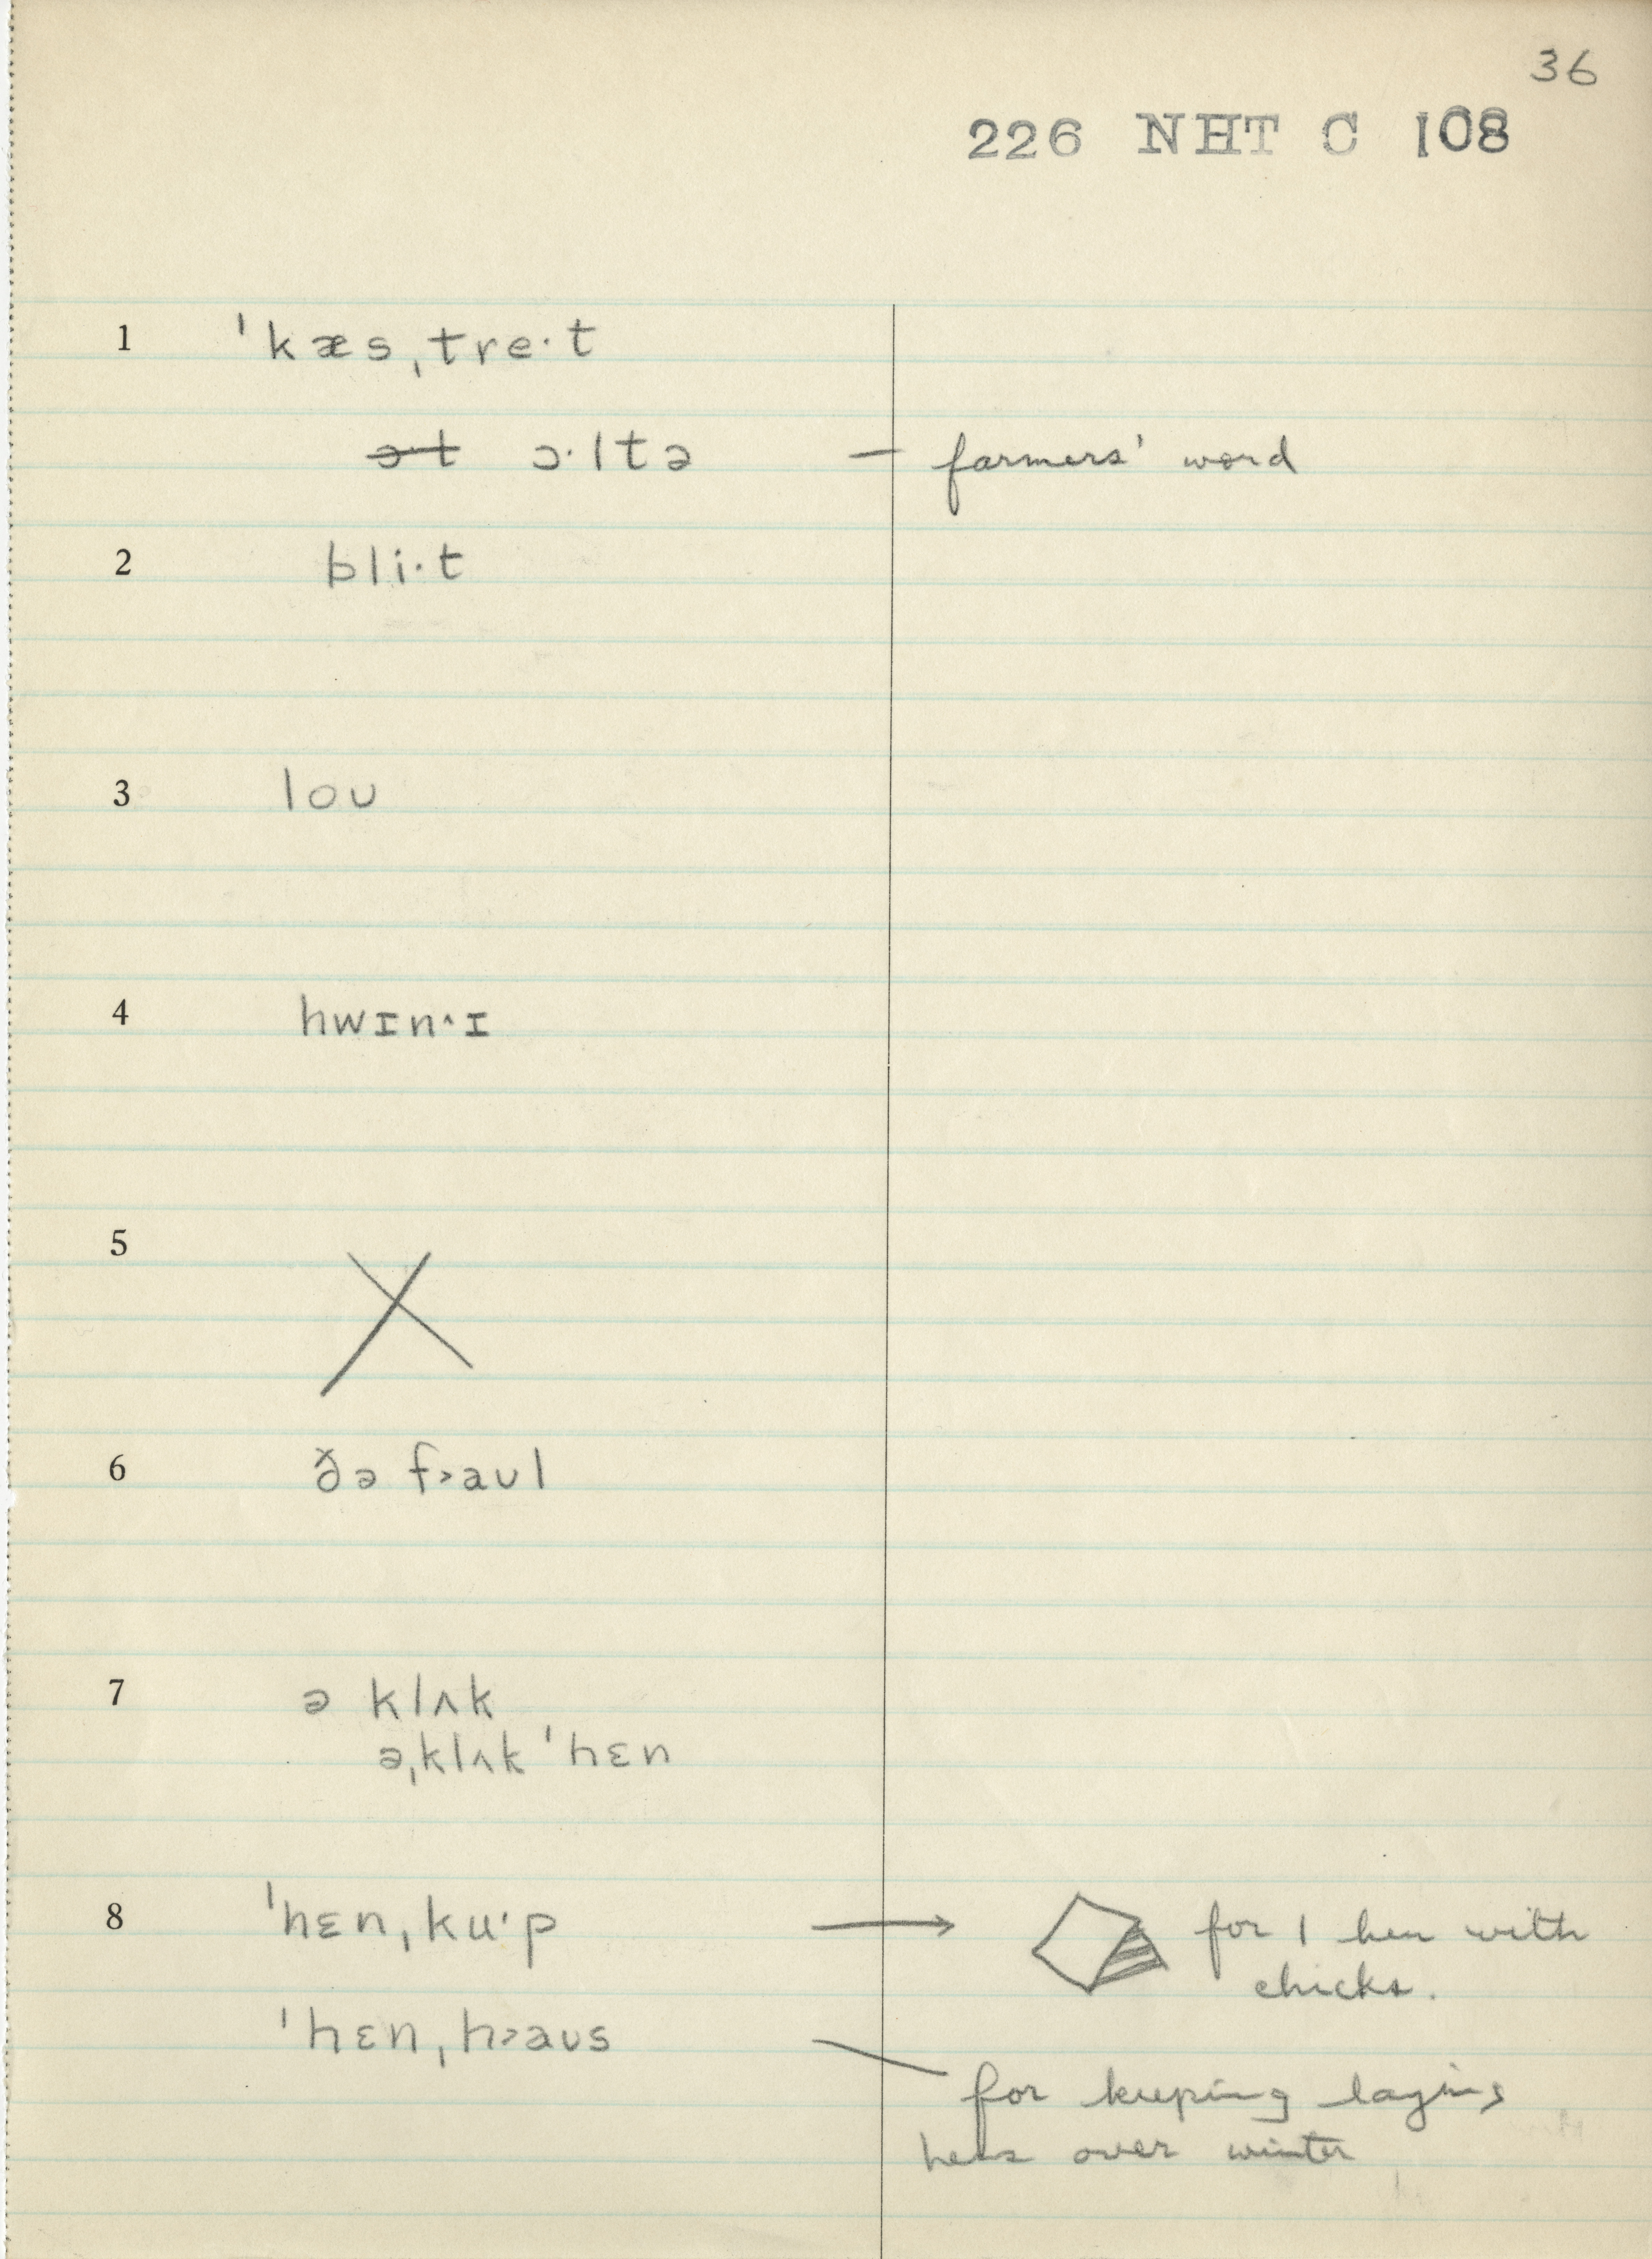 36
226 NHT C 108
1 ˈkæsˌtre·t
ə·t ɔ·ltə — farmers' word
2 bli·t
3 loʊ
4 hwɪn^ɪ
5 X
6 ðə f>aʊl
7 ə klʌk
əˌklʌk ˈhɛn
8 ˈhɛnˌku·p → for 1 hen with
chicks.
ˈhɛnˌh>aʊs — for keeping laying
hens over winter